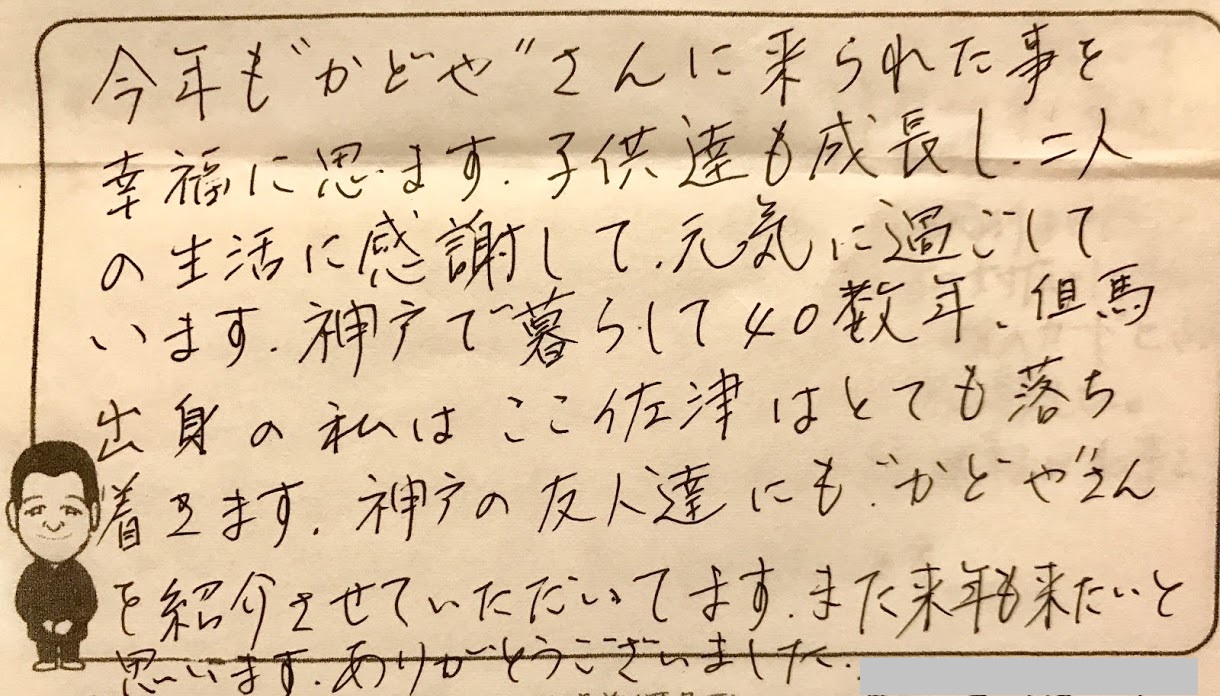 今年も"かどや"さんに来られた事を
幸福に思ます.子供達も成長し.二人
の生活に感謝して.元気に過ごして
います.神戸で暮らして40数年、但馬
出身の私はここ佐津はとても落ち
着きます.神戸の友人達にも"かどや"さん
を紹介させていただいてます.また来年も来たいと
思います.ありがとうございました.